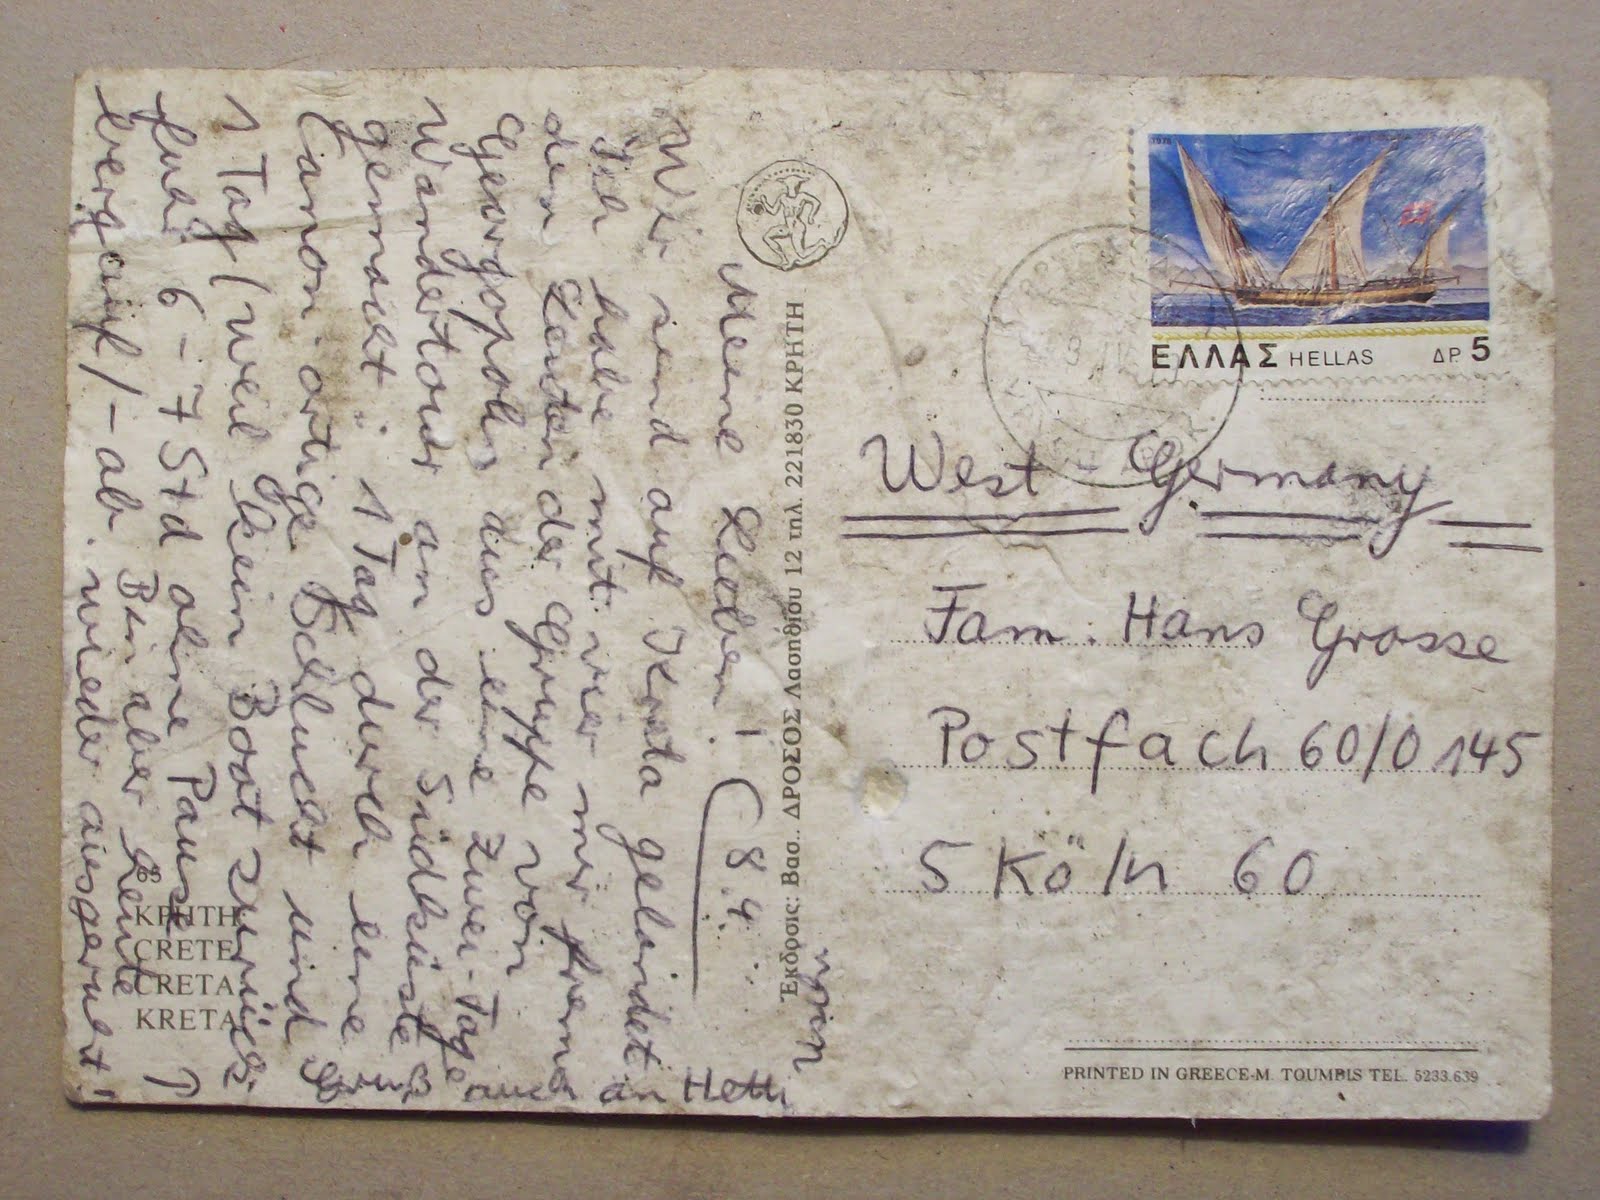 Meine Lieben! (8.4.
Wir sind auf Kreta gelandet
Ich habe mit vier mir fremd
den Leuten der Gruppe von
Georgopolis aus eine Zwei-Tage
Wandertour an der Südküste
gemacht: 1 Tag durch eine
Canon-artige Schlucht und
1 Tag (weil kein Boot zurück
fuhr 6-7 Std ohne Pause
bergauf/-ab. Bin aber Leute
wieder ausgeruht!
Gruß auch an Hetti
ΚΡΗΤΗ
CRETE
CRETA
KRETA
Έκδοσις: Βασ.. ΔΡΟΣΟΣ Λασηθίου 12 τηλ. 221830 ΚΡΗΤΗ
1978
ΕΛΛΑΣ HELLAS ΔΡ 5
West Germany
Fam. Hans Grosse
Postfach 60/0 145
5 Köln 60
PRINTED IN GREECE-M. TOUMBIS TEL. 5233.639